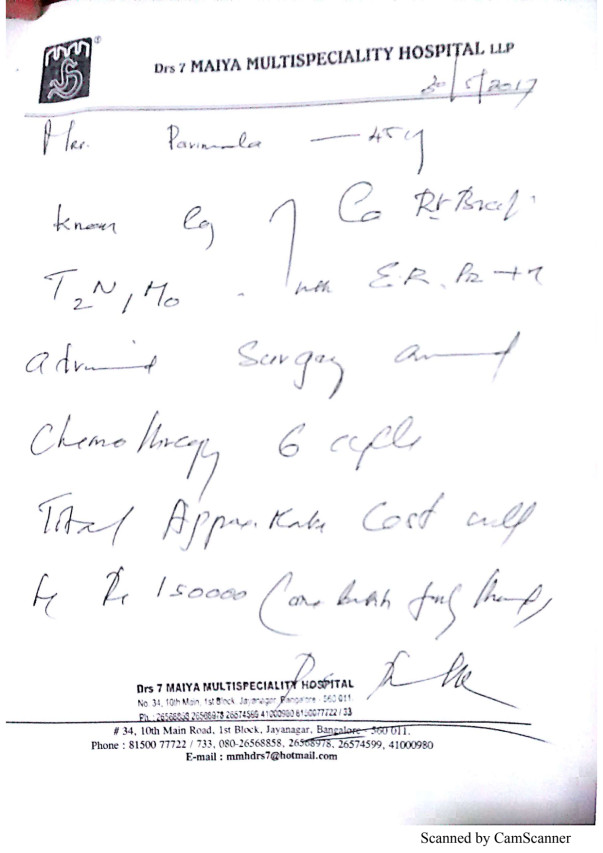 Drs 7 MAIYA MULTISPECIALITY HOSPITAL LLP
20/5/2017
Mrs. Parimala — 45y
Known Ca Rt Breast
T2N1M0 - with ER, PR +ve
advised Surgery and
Chemotherapy 6 cycle
Total Approximate Cost will
be Rs 150000 (one lakh fifty thousand)
Drs 7 MAIYA MULTISPECIALITY HOSPITAL
No. 34, 10th Main, 1st Block, Jayanagar, Bangalore - 560 011.
Ph.: 26568858 26568978 26574599 41000980 8150077722 / 33
# 34, 10th Main Road, 1st Block, Jayanagar, Bangalore - 560 011.
Phone : 81500 77722 / 733, 080-26568858, 26568978, 26574599, 41000980
E-mail : mmhdrs7@hotmail.com
Scanned by CamScanner